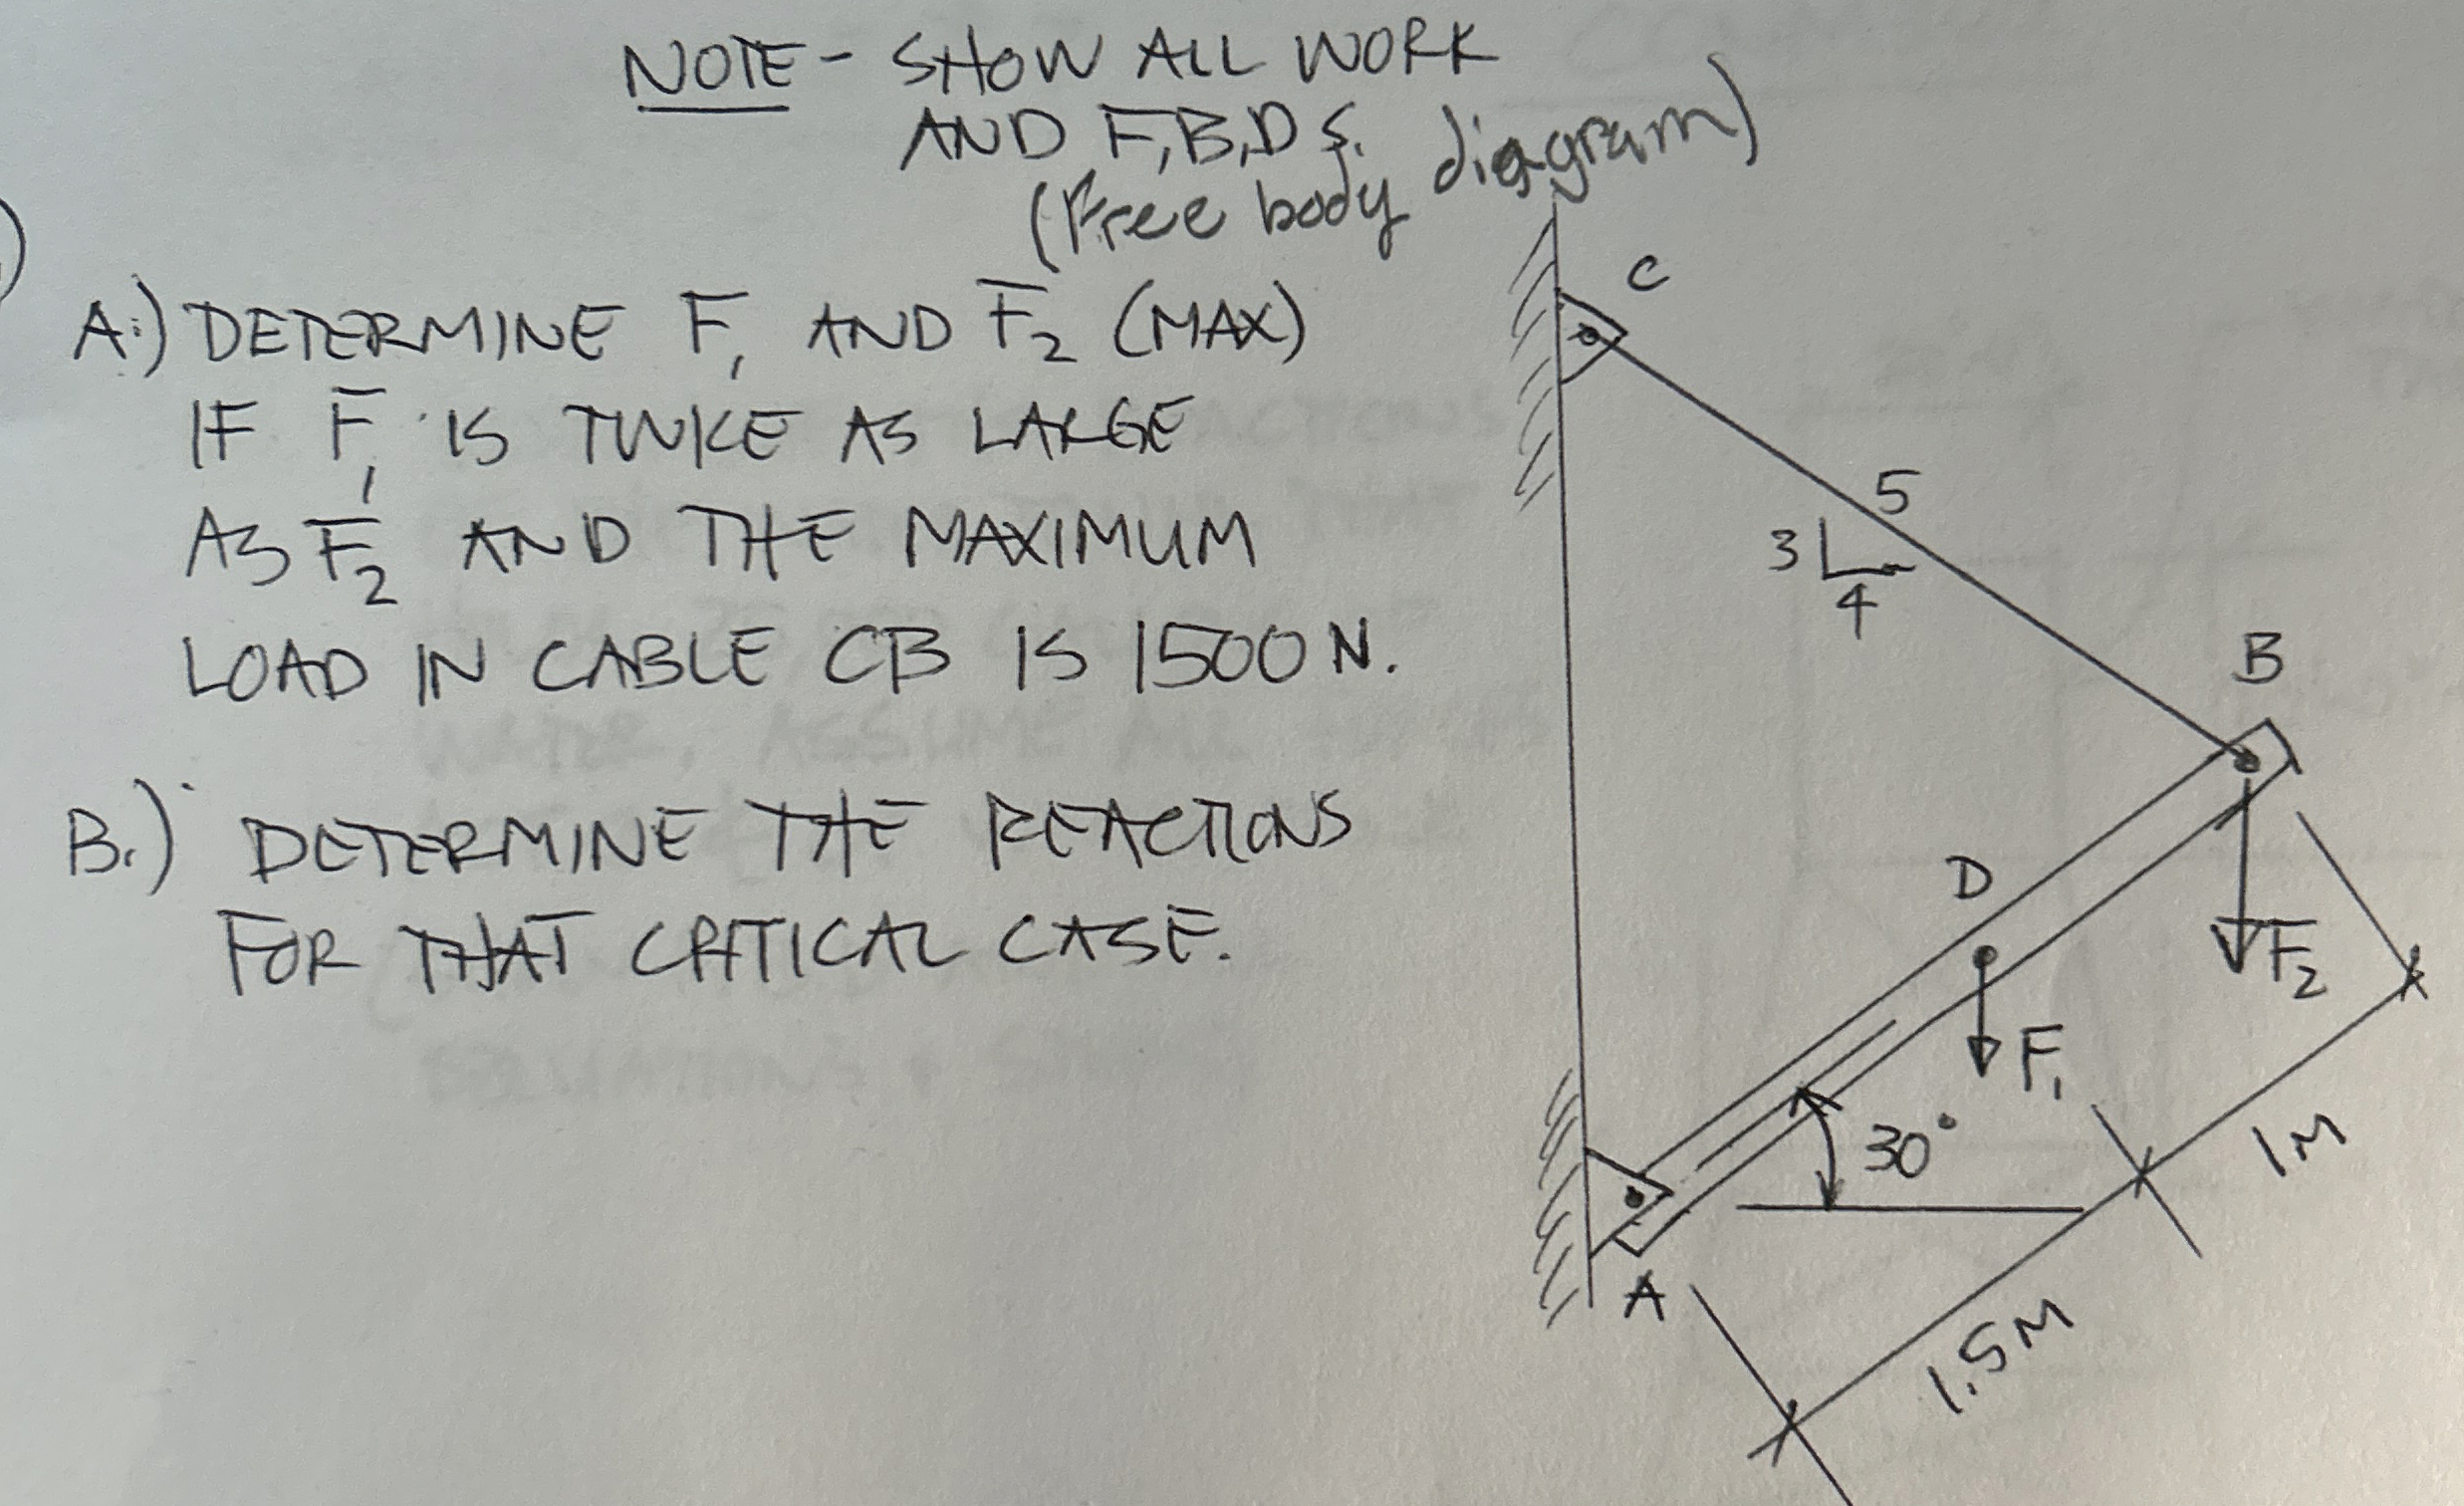 NOTE - SHOW ALL WORK
AND F,B,D S.
(Free body diagram)
A.) DETERMINE F₁ AND F₂ (MAX)
IF F₁ IS TWICE AS LARGE
AS F₂ AND THE MAXIMUM
LOAD IN CABLE CB IS 1500 N.
B.) DETERMINE THE REACTIONS
FOR THAT CRITICAL CASE.
C
5
3
4
B
D
F₂
F₁
30°
1M
A
1.5M